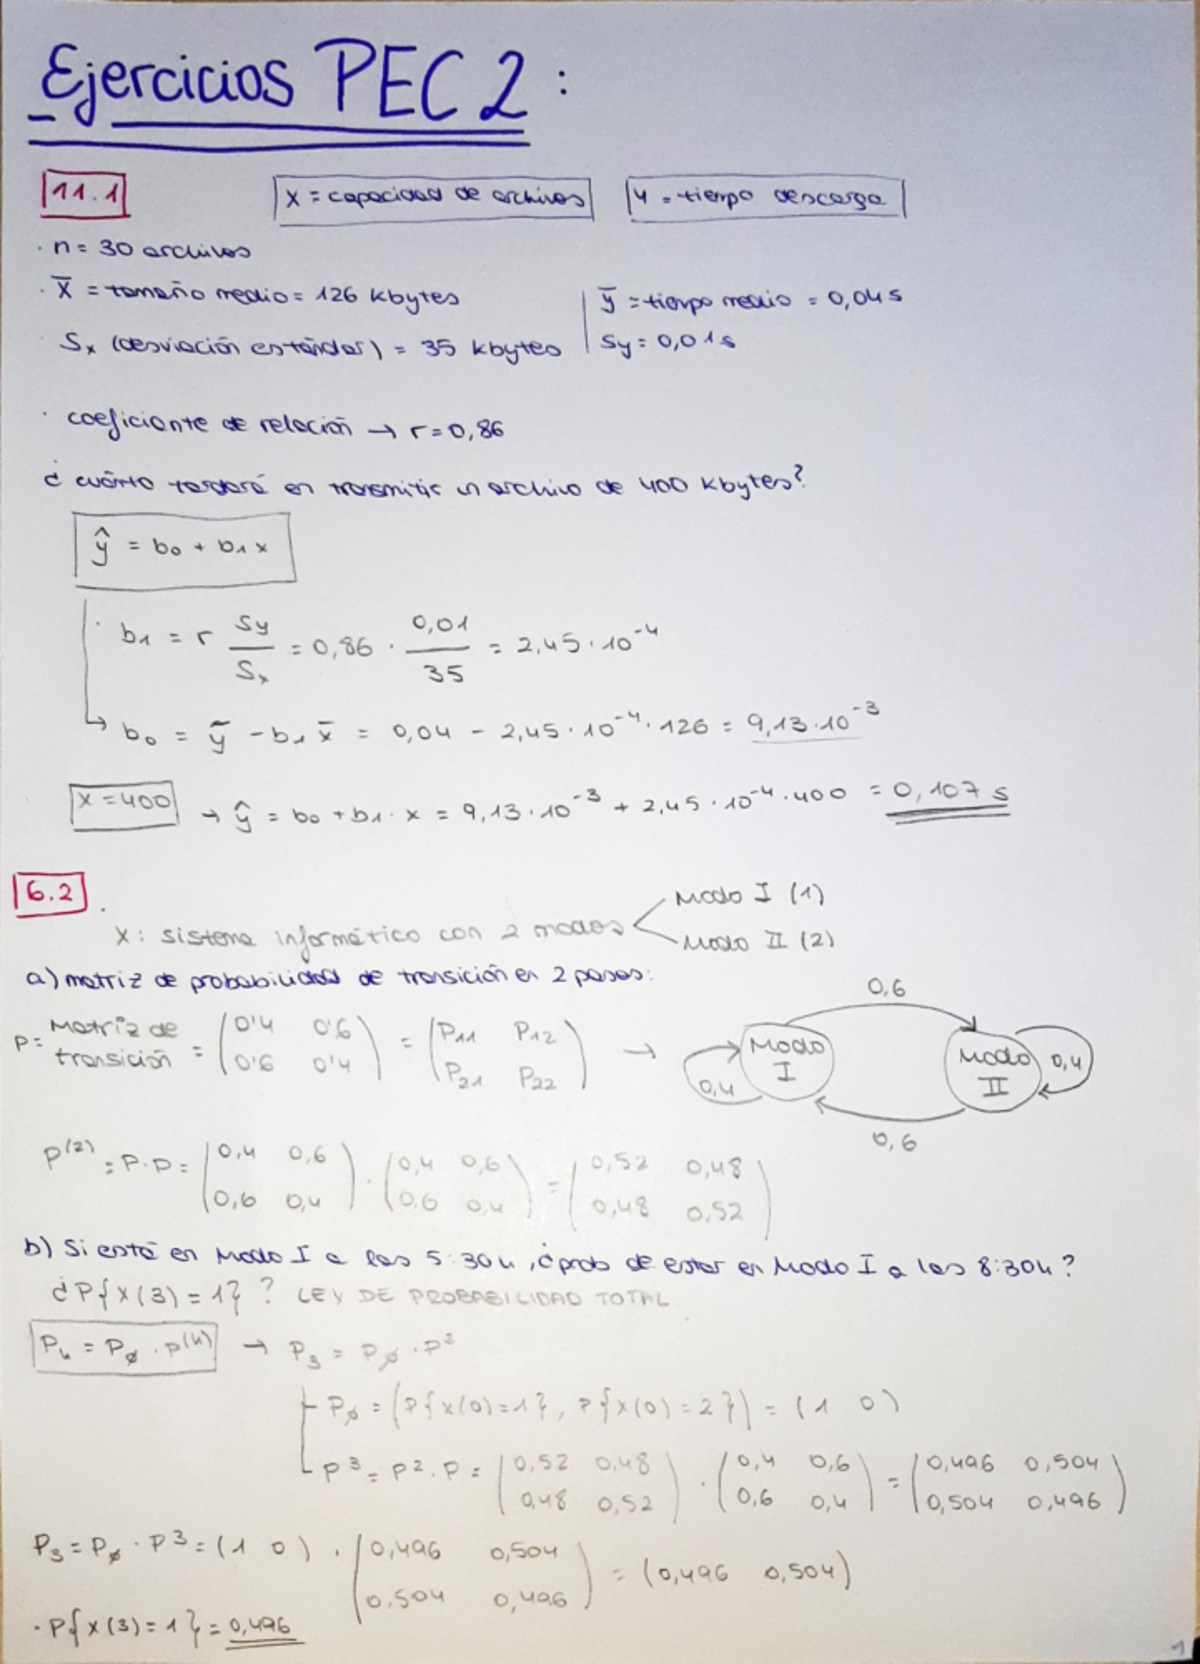 Ejercicios PEC 2 :
11.1
x = capacidad de archivos
y = tiempo descarga
· n = 30 archivos
· x̄ = tamaño medio = 126 kbytes
ȳ = tiempo medio = 0,04 s
Sx (desviación estándar) = 35 kbytes
Sy = 0,01 s
· coeficiente de relación → r = 0,86
¿ cuánto tardará en transmitir un archivo de 400 kbytes?
ŷ = b0 + b1 x
· b1 = r Sy/Sx = 0,86 · 0,01/35 = 2,45 · 10^-4
→ b0 = ȳ - b1 x̄ = 0,04 - 2,45 · 10^-4 · 126 = 9,13 · 10^-3
x = 400 → ŷ = b0 + b1 · x = 9,13 · 10^-3 + 2,45 · 10^-4 · 400 = 0,107 s
6.2
Modo I (1)
x : sistema informático con 2 modos
Modo II (2)
a) matriz de probabilidad de transición en 2 pasos:
0,6
P = Matriz de transición = (0'4 0'6 / 0'6 0'4) = (P11 P12 / P21 P22) →
Modo I
Modo II
0,4
0,4
0,6
P^(2) = P · P = (0,4 0,6 / 0,6 0,4) · (0,4 0,6 / 0,6 0,4) = (0,52 0,48 / 0,48 0,52)
b) Si está en Modo I a las 5:30h, ¿prob de estar en Modo I a las 8:30h?
¿P{x(3) = 1} ? LEY DE PROBABILIDAD TOTAL
Ph = P∅ · P^(h) → P3 = P∅ · P^3
P∅ = (P{x(0)=1}, P{x(0)=2}) = (1 0)
P^3 = P^2 · P = (0,52 0,48 / 0,48 0,52) · (0,4 0,6 / 0,6 0,4) = (0,496 0,504 / 0,504 0,496)
P3 = P∅ · P^3 = (1 0) · (0,496 0,504 / 0,504 0,496) = (0,496 0,504)
· P{x(3) = 1} = 0,496
1